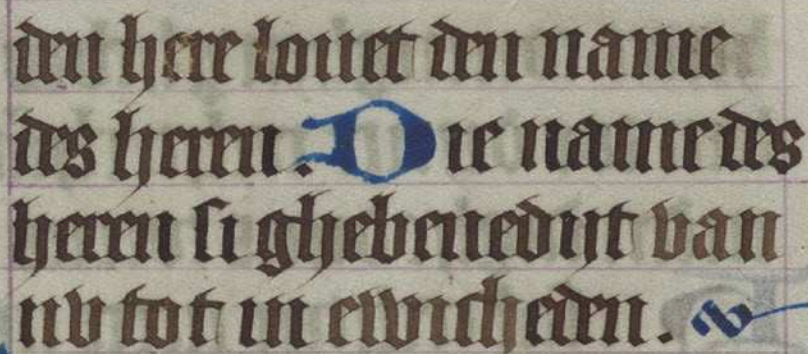 den here louet den name
des heren. Die name des
heren si ghebenedijt van
nv tot in ewicheden.